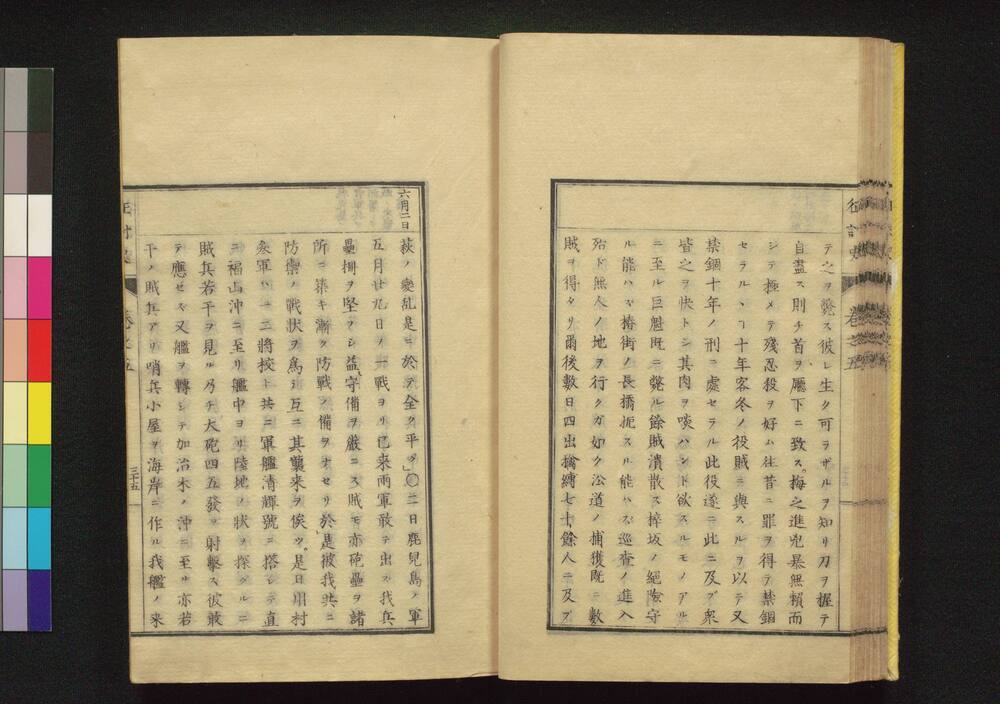 テ之ヲ斃ス彼レ生ク可ヲザルヲ知リ刀ヲ握テ
自盡ス則チ首ヲ廳下ニ致ス。梅之進兇暴無頼而
シテ極メテ殘忍殺ヲ好ム往昔ニ罪ヲ得テ禁錮
セラルヽヿ十年客冬ノ役賊ニ與スルヲ以テ又
禁錮十年ノ刑ニ處セラル此役遂ニ此ニ及ブ衆
皆之ヲ快トシ其肉ヲ啖ハント欲スルモノアル
ニ至ル巨魁既ニ斃ル餘賊潰散ス捽坂ノ絕險守
ル能ハズ椿街ノ長橋扼スル能ハズ巡査ノ進入
殆ド無人ノ地ヲ行クガ如ク沿道ノ捕獲既ニ數
賊ヲ得タリ爾後數日四出擒縛七十餘人ニ及ブ
六月二日
萩ノ變乱是ニ於テ全ク平グ」〇二日鹿兒島ノ軍
五月廿九日ノ一戰ヨリ已来兩軍敢テ出ズ我兵
壘柵ヲ堅クシ益守備ヲ厳ニス賊モ亦砲壘ヲ諸
所ニ築キ漸ク防戰ノ備ヲナセリ於是彼我共ニ
防禦ノ戰状ヲ爲シ互ニ其襲来ヲ俟ツ。是日川村
叅軍ハ一二將校ト共ニ軍艦清輝號ニ搭シテ直
ニ福山沖ニ至リ艦中ヨリ陸地ノ状ヲ探グルニ
賊兵若干ヲ見ル乃チ大砲四五發ヲ射撃ス彼敢
テ應セズ又艦ヲ轉シテ加治木ノ沖ニ至ル亦若
干ノ賊兵アリ哨兵小屋ヲ海岸ニ作ル我艦ノ来
卷之五
三十五